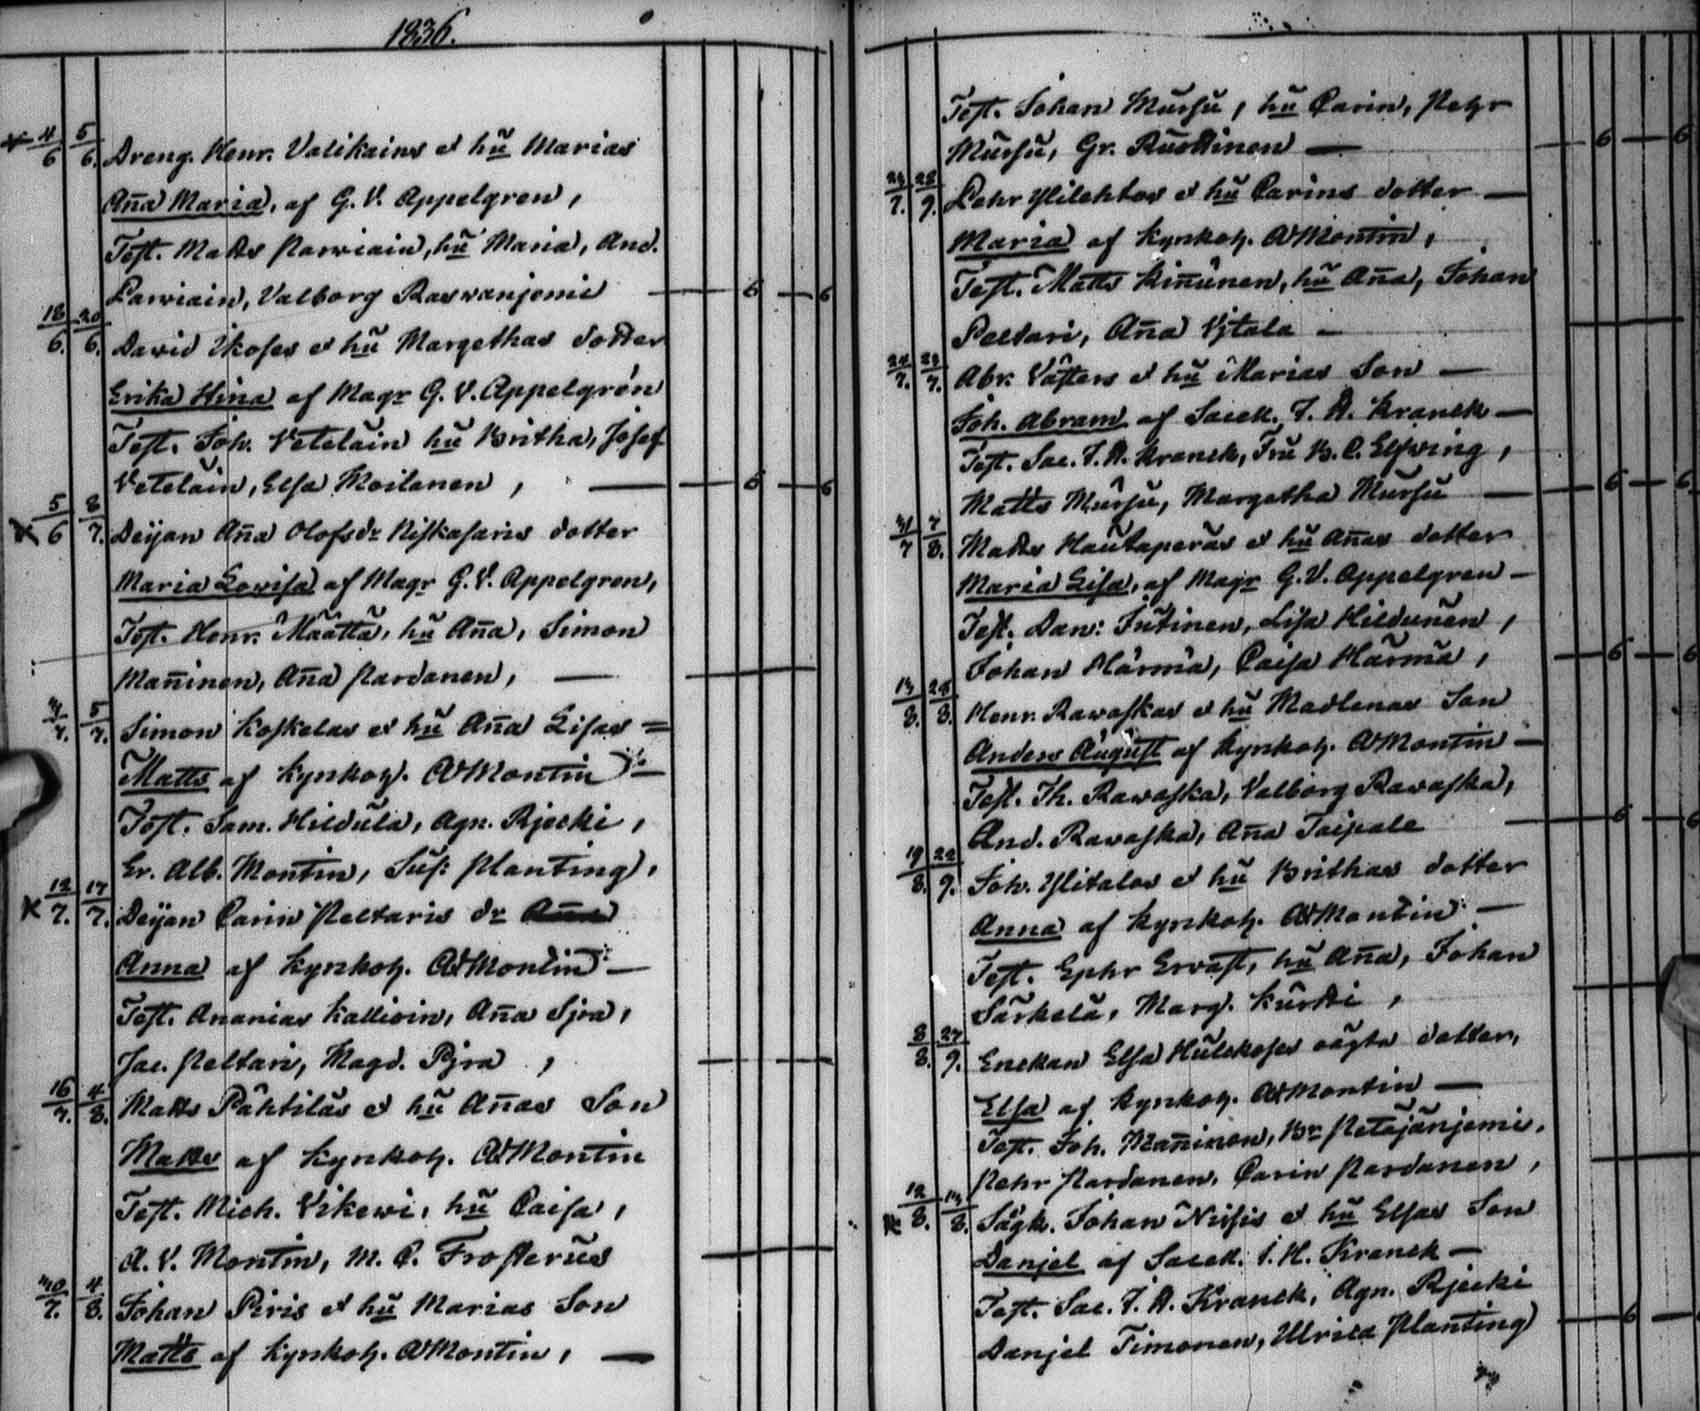 1836.
4/6 5/6. Dreng. Henr. Valikains et hu Marias
Aña Maria, af G. V. Appelgren,
Test. Matts Parviain, hu Maria, And.
Parviain, Valborg Raswanjemi — 6 — 6
18/6. 20/6. David Ikofes et hu Margethas dotter
Erika Stina af Magr G. V. Appelgrén
Test. Joh. Veteläin hu Britha, Josef
Vetelain, Elsa Moilanen, — 6 — 6
5/6 8/7. Deijan Aña Olofsdr Niskasaris dotter
Maria Lovisa af Magr G. V. Appelgren,
Test. Henr. Määttä, hu Aña, Simon
Mañinen, Aña Pardanen, —
5/7. Simon Koskelas et hu Aña Lisas =
Matts af Kyrkoh. A Montin —
Test. Sam. Hildula, Agn. Rjecki,
Er. Alb. Montin, Sus: Planting,
12/7. 17/7. Deijan Carin Peltaris dr
Anna af Kyrkoh. A Montin —
Test. Ananias Kallioin, Aña Sjra,
Jac. Peltari, Magd. Pjra,
16/7. 4/8. Matts Pähtiläs et hu Añas Son
Matts af Kyrkoh. A Montin
Test. Mich. Vikewi, hu Caisa,
A. V. Montin, M. C. Frosterus
30/7. 4/8. Johan Piris et hu Marias Son
Matts af Kyrkoh. A Montin, —
Test. Johan Mursu, hu Carin, Pehr
Mursu, Gr. Ruottinen — 6 — 6
Pehr Ylilehtos et hu Carins dotter —
Maria af Kyrkoh. A Montin,
Test. Matts Kiñunen, hu Aña, Johan
Peltari, Aña Vjtala —
Abr. Västers et hu Marias Son —
Joh. Abram af Sacell. J. H. Kranck —
Test. Sac. J. H. Kranck, Fru B. C. Elfving,
Matts Mursu, Margetha Mursu — 6 — 6
31/7 7/8. Matts Hautaperäs et hu Añas dotter
Maria Lisa, af Magr G. V. Appelgren —
Test. Dan: Jutinen, Lisa Hildunen,
Johan Härmä, Caisa Härmä, — 6 — 6
Henr. Rawaskas et hu Madlenas Son
Anders August af Kyrkoh. A Montin —
Test. Th. Rawaska, Valborg Rawaska,
And. Rawaska, Aña Taipale — 6 — 6
19/8. 22/9. Joh. Ylitalos et hu Brithas dotter
Anna af Kyrkoh. A Montin —
Test. Ephr Ervast, hu Aña, Johan
Särkelä, Marg. Kurtti,
8/8. 27/9. Enckan Elsa Hulckofes oägta dotter,
Elsa af Kyrkoh. A Montin —
Test. Joh. Mañinen, Br Petäjänjemi,
Pehr Pardanen, Carin Pardanen,
12/8. 14/8. Sågk. Johan Nissis et hu Elsas Son
Danjel af Sacell. J. H. Kranck —
Test. Sac. J. H. Kranck, Agn. Rjecki
Danjel Timonen, Ulrica Planting — 6 —